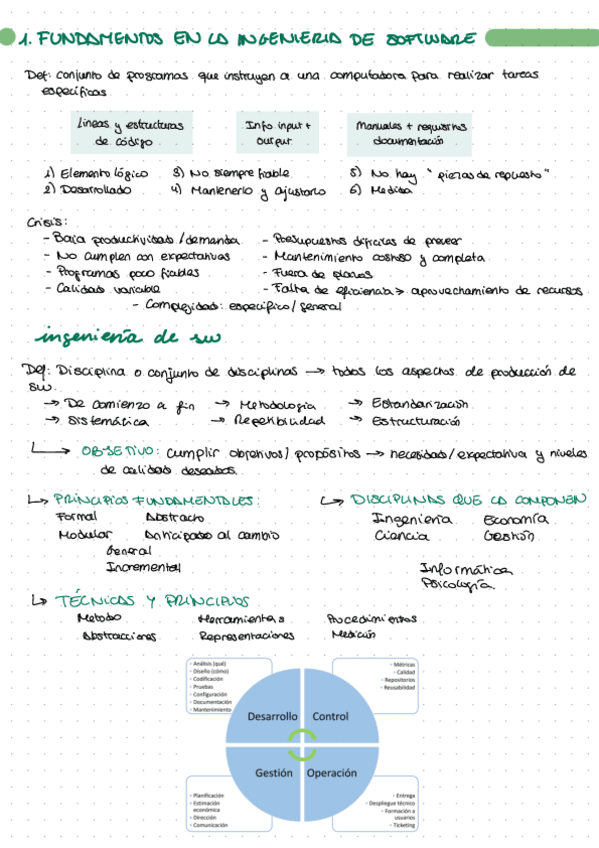 1. FUNDAMENTOS EN LA INGENIERIA DE SOFTWARE
Def: conjunto de programas que instruyen a una computadora para realizar tareas
específicas.
Líneas y estructuras
de código
Info input +
output
Manuales + requisitos
documentación
1) Elemento lógico
3) No siempre fiable
5) No hay "piezas de repuesto"
2) Desarrollado
4) Mantenerlo y ajustarlo
6) Medida
Crisis:
- Baja productividad / demanda
- Presupuestos difíciles de prever
- No cumplen con expectativas
- Mantenimiento costoso y completa
- Programas poco fiables
- Fuera de plazos
- Calidad variable
- Falta de eficiencia > aprovechamiento de recursos
- Complejidad: específico / general
ingeniería de sw
Def: Disciplina o conjunto de disciplinas → todos los aspectos de producción de
sw.
→ De comienzo a fin → Metodología → Estandarización
→ Sistemática → Repetibilidad → Estructuración
OBJETIVO: cumplir objetivos / propósitos → necesidad / expectativa y niveles
de calidad deseados.
↳ PRINCIPIOS FUNDAMENTALES:
Formal Abstracto
Modular Anticipado al cambio
General
Incremental
↳ DISCIPLINAS QUE LA COMPONEN
Ingeniería Economía
Ciencia Gestión
Informática
Psicología
↳ TÉCNICAS Y PRINCIPIOS
Metodo Herramientas Procedimientos
Abstracciones Representaciones Medición
- Análisis (qué)
- Diseño (cómo)
- Codificación
- Pruebas
- Configuración
- Documentación
- Mantenimiento
- Métricas
- Calidad
- Repositorios
- Reusabilidad
Desarrollo Control
Gestión Operación
- Planificación
- Estimación
económica
- Dirección
- Comunicación
- Entrega
- Despliegue técnico
- Formación a
usuarios
- Ticketing